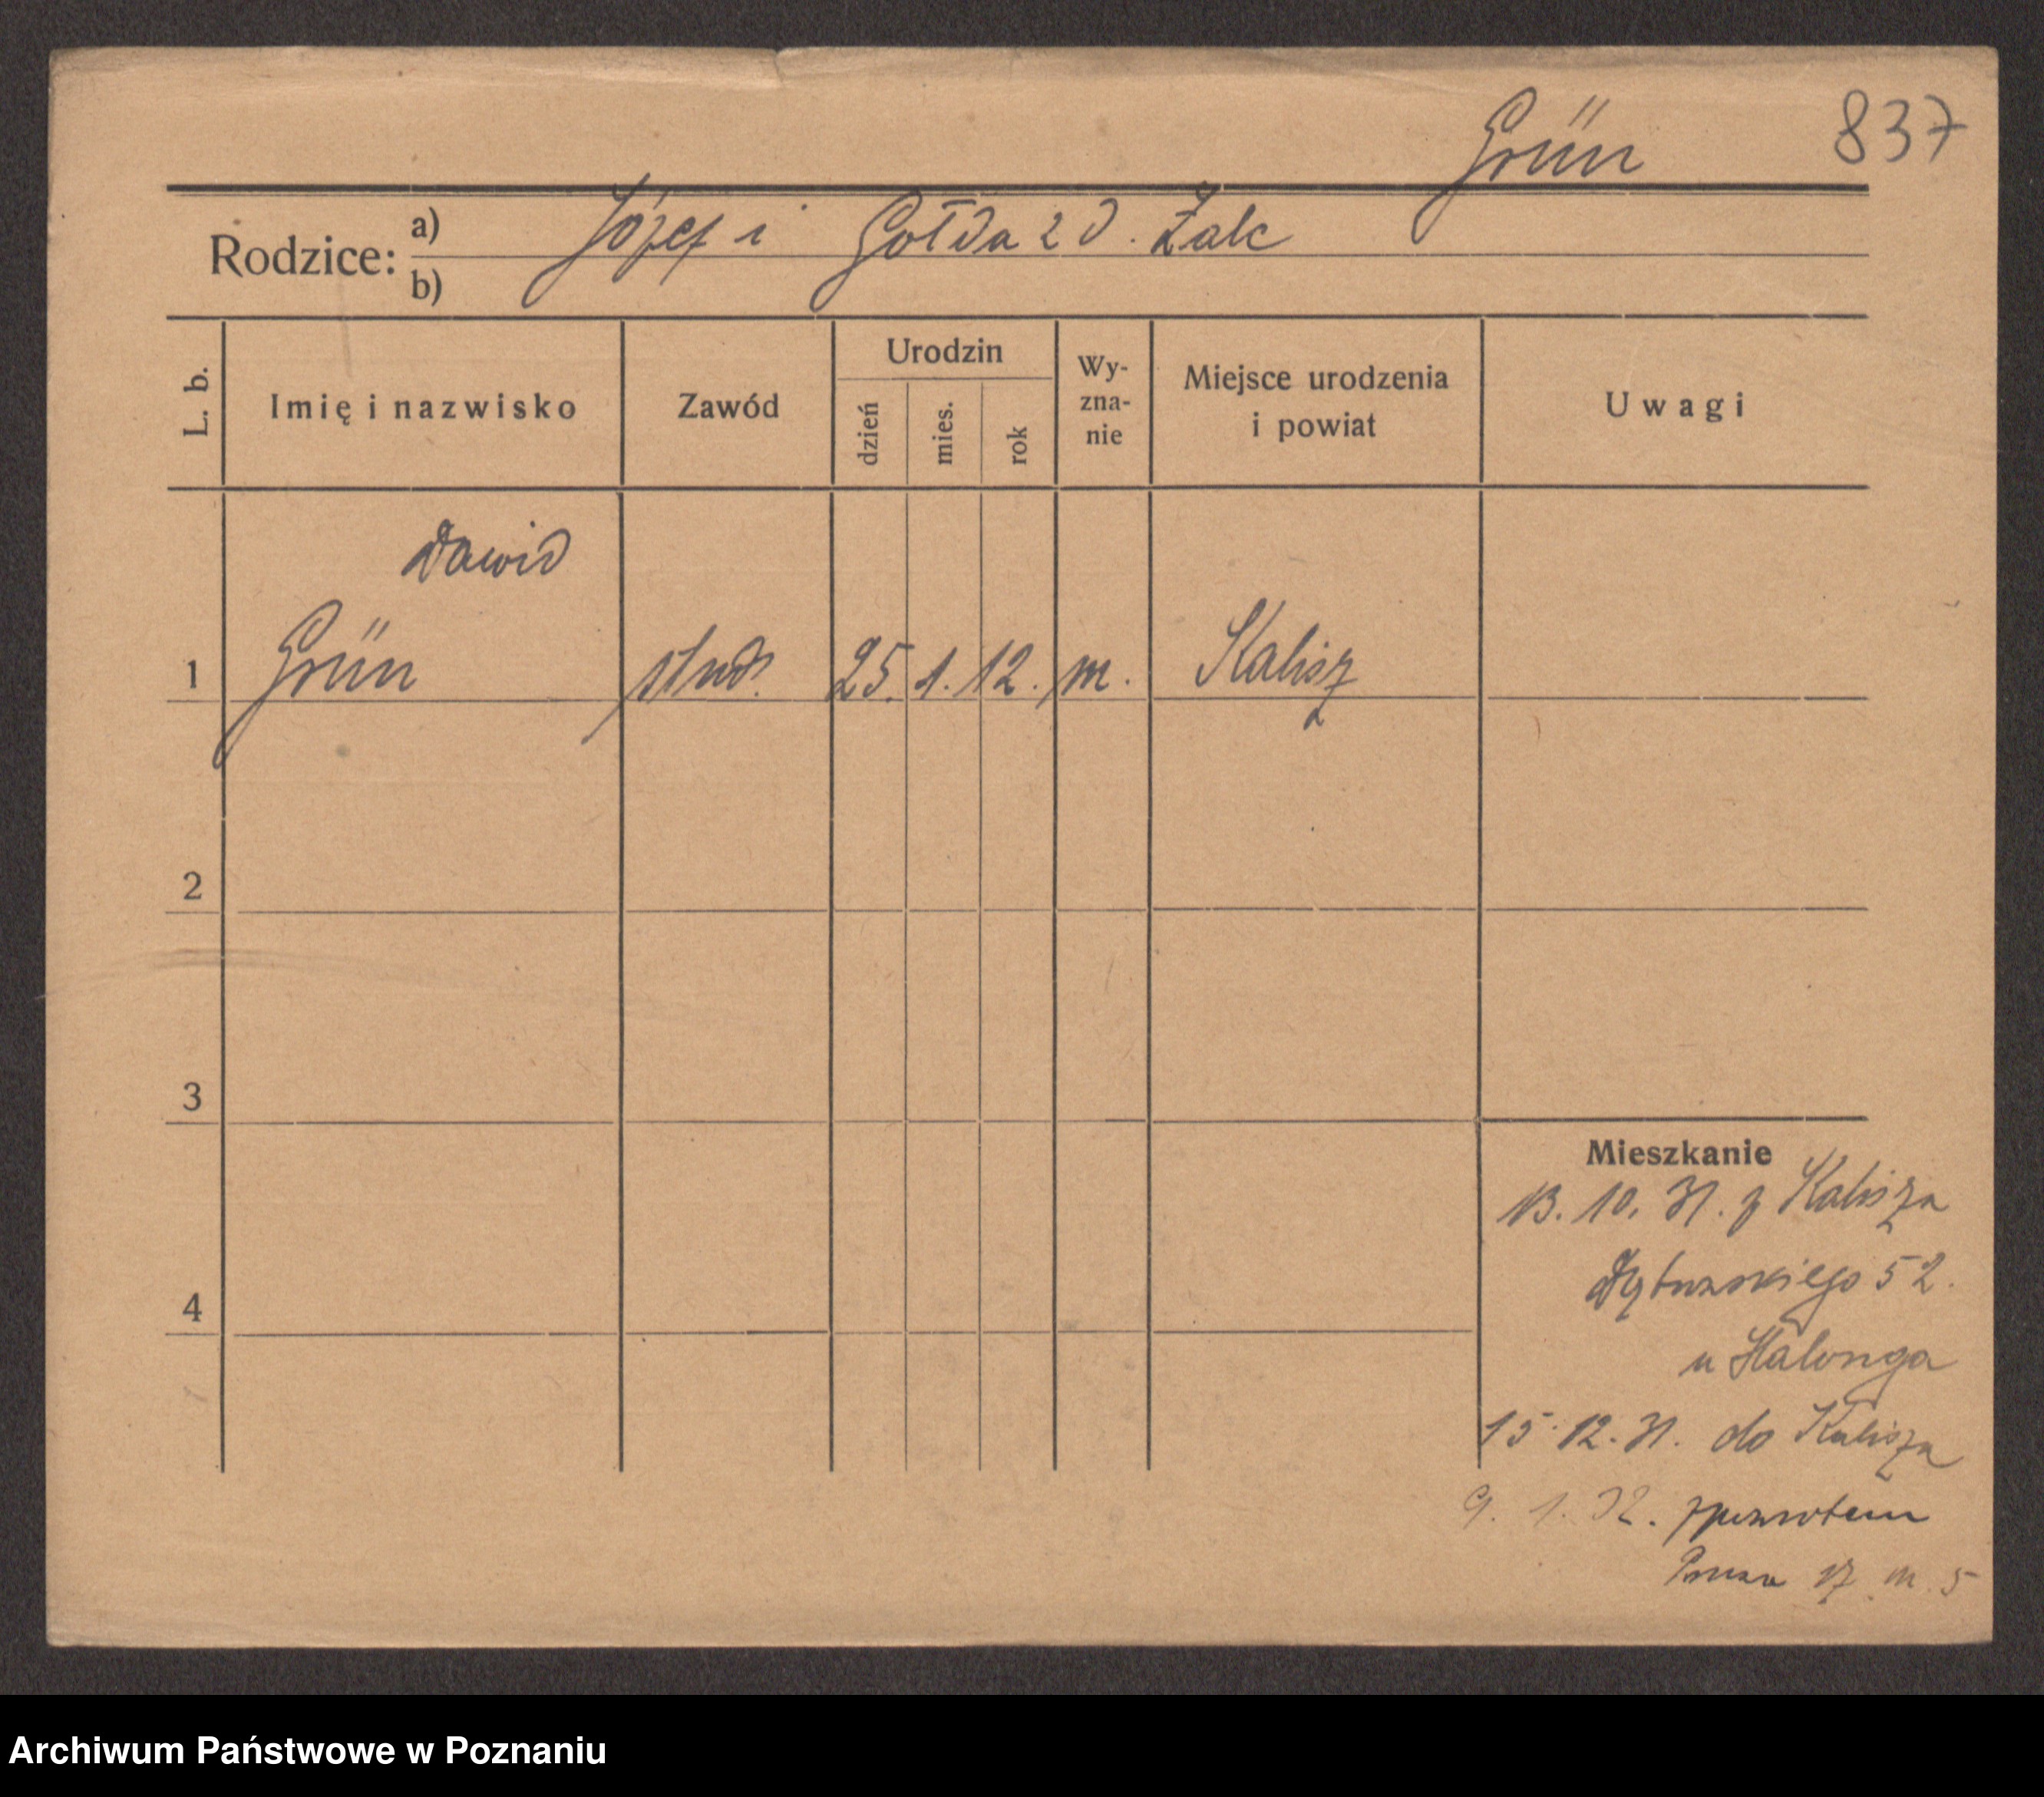 Grün 837
Rodzice: a) Józef i Gołda z d. Zalc
b)
L. b. Imię i nazwisko Zawód Urodzin dzień mies. rok Wy-zna-nie Miejsce urodzenia i powiat Uwagi
Dawid
1 Grün stud. 25. 1. 12. m. Kalisz
2
3
Mieszkanie
13. 10. 31. z Kalisza
4
52.
u
15 12. 31. do Kalisza
9. 1. 32. zpowrotem
17 m. 5
Archiwum Państwowe w Poznaniu